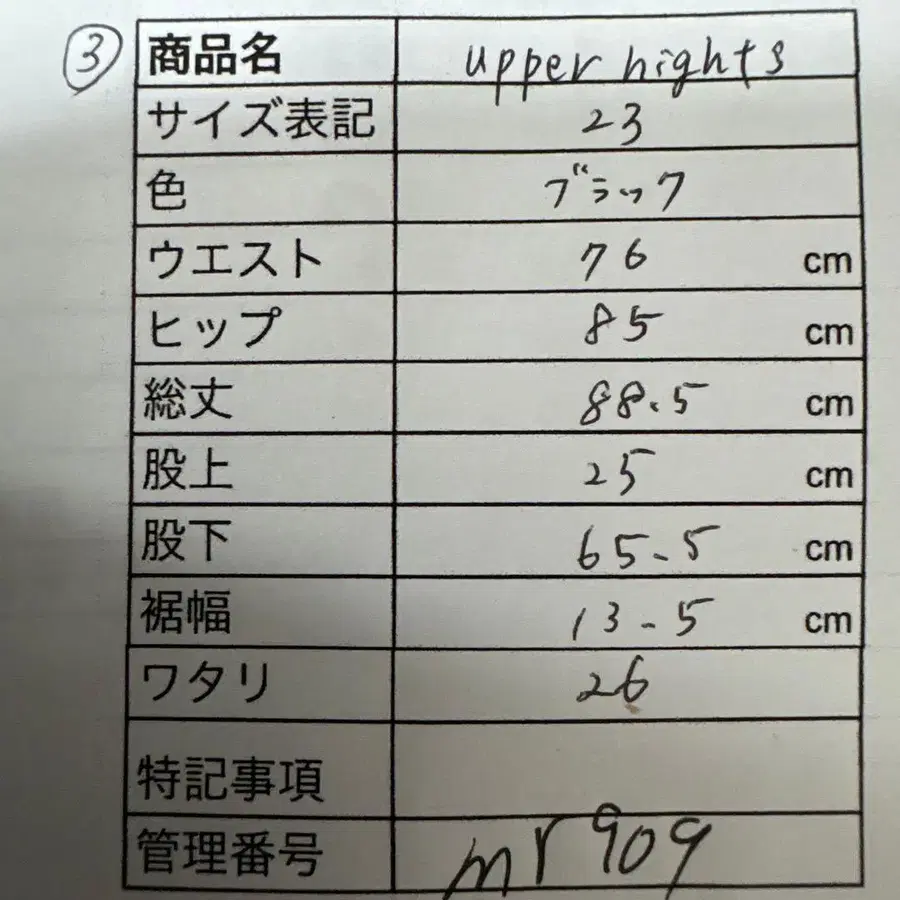 ③
商品名 upper hights
サイズ表記 23
色 ブラック
ウエスト 76 cm
ヒップ 85 cm
総丈 88.5 cm
股上 25 cm
股下 65.5 cm
裾幅 13.5 cm
ワタリ 26
特記事項
管理番号 mr909